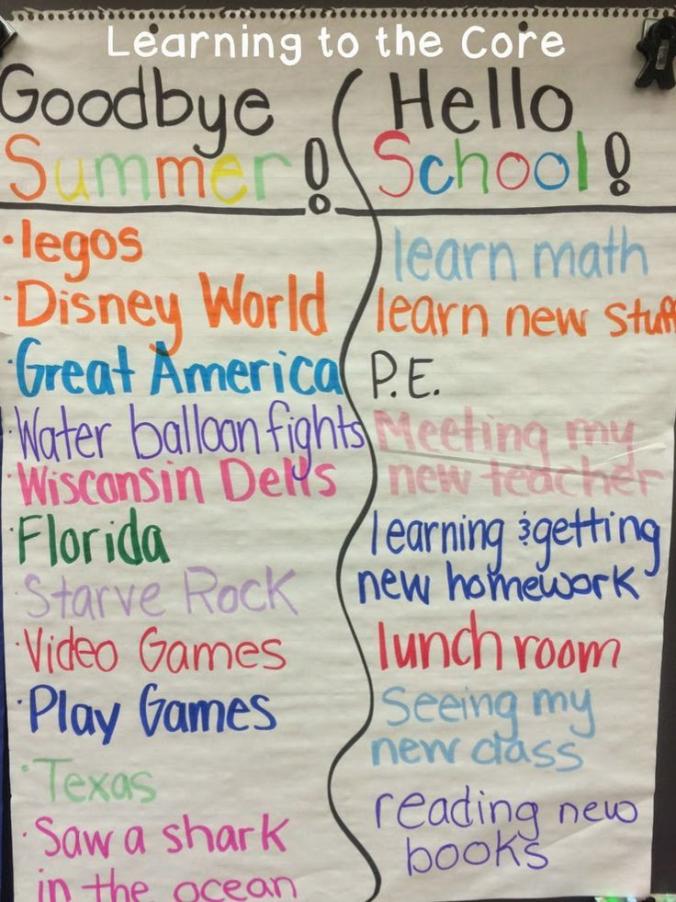 Learning to the Core
Goodbye
Summer!
• legos
• Disney World
• Great America
• Water balloon fights
• Wisconsin Dells
• Florida
• Starve Rock
• Video Games
• Play Games
• Texas
• Saw a shark
in the ocean
Hello
School!
learn math
learn new stuff
P.E.
Meeting my
new teacher
learning & getting
new homework
lunch room
Seeing my
new class
reading new
books